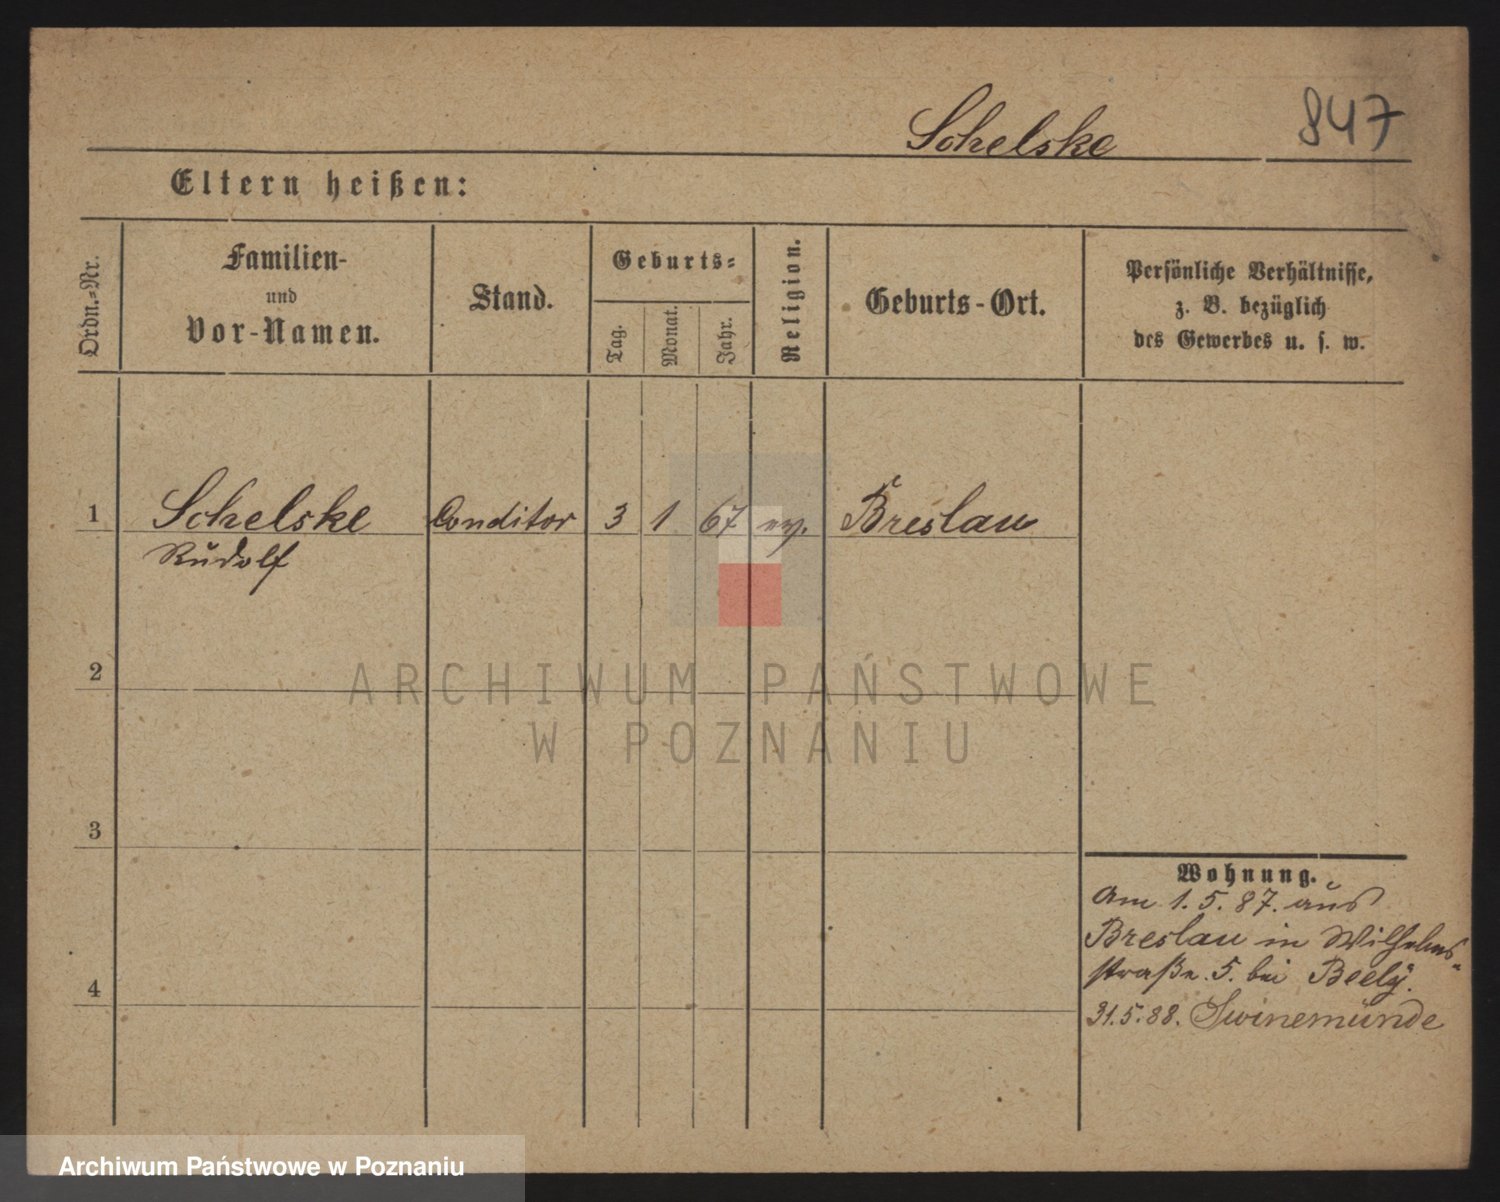 Schelske 847
Eltern heißen:
Ordn.-Nr.
Familien-
und
Vor-Namen.
Stand.
Geburts-
Tag.
Monat.
Jahr.
Religion.
Geburts-Ort.
Persönliche Verhältnisse,
z. B. bezüglich
des Gewerbes u. s. w.
1 Schelske Conditor 3 1 67 ev. Breslau
Rudolf
2
ARCHIWUM PAŃSTWOWE
W POZNANIU
3
4
Wohnung.
Am 1. 5. 87. aus
Breslau in Wilhelms-
straße. 5. bei Beely.
31.5.88. Swinemünde
Archiwum Państwowe w Poznaniu